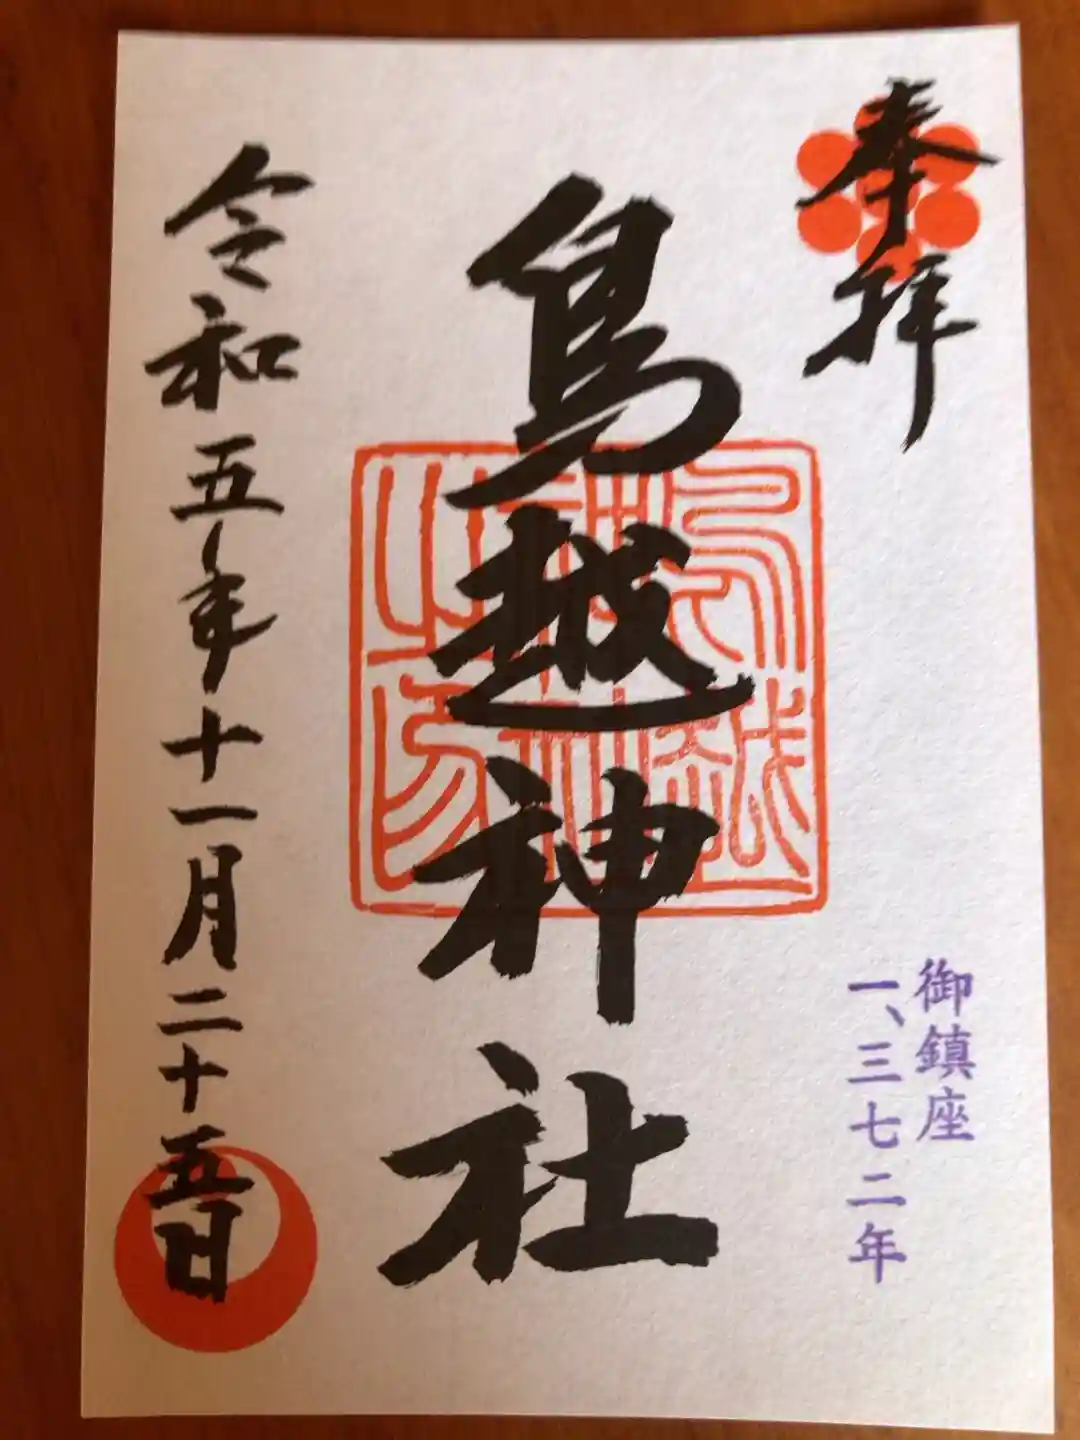 奉拝
御鎮座
一、三七二年
鳥越神社
令和五年十一月二十五日